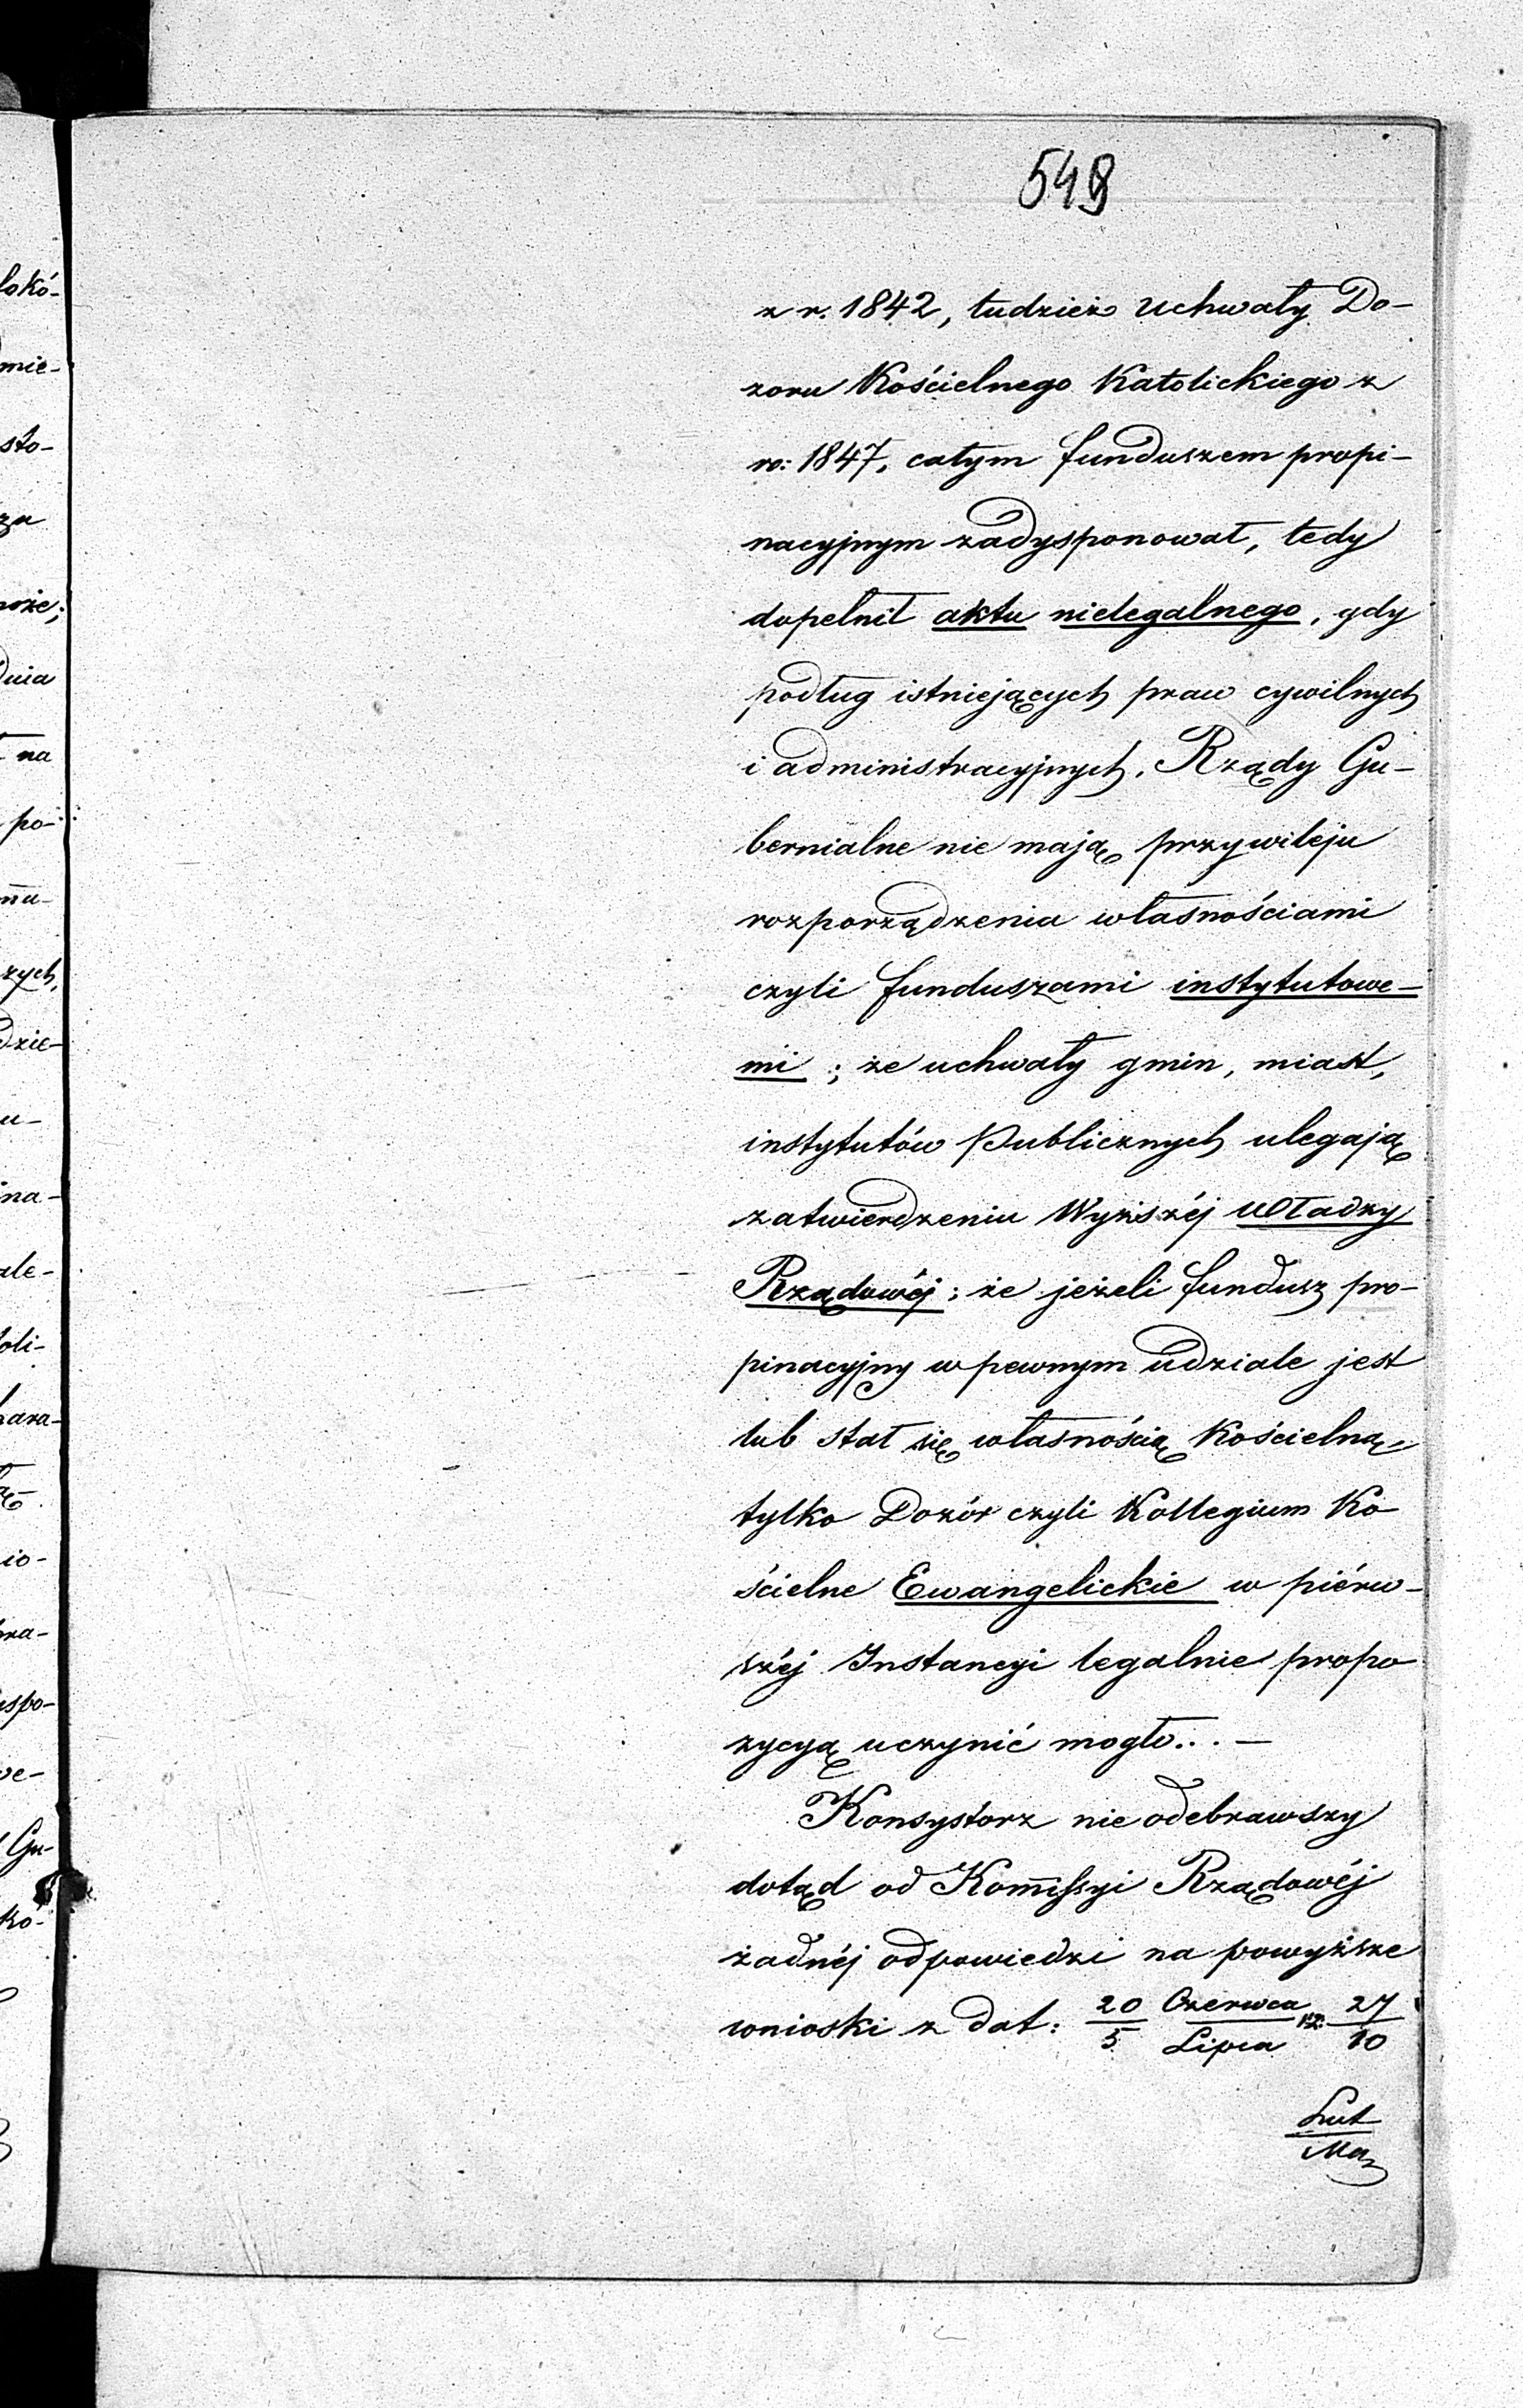 549
z r. 1842, tudzież Uchwały Do-
zoru Kościelnego Katolickiego z
r: 1847, całym funduszem propi-
nacyjnym zadysponował, tedy
dopełnił aktu nielegalnego, gdy
podług istniejących praw cywilnych
i administracyjnych, Rządy Gu-
bernialne nie mają przywileju
rozporządzenia własnościami
czyli funduszami instytutowe-
mi; że uchwały gmin, miast,
instytutów Publicznych ulegają
zatwierdzeniu Wyższéj Władzy
Rządowéj; że jeżeli fundusz pro-
pinacyjny w pewnym udziale jest
lub stał się własnością Kościelną,
tylko Dozór czyli Kollegium Ko
ścielne Ewangelickie w piérw-
széj Instancyi legalnie propo
zycyą uczynić mogło... —
Konsystorz nie odebrawszy
dotąd od Kom̅issyi Rządowéj
żadnéj odpowiedzi na powyższe
wnioski z dat: 20/5 Czerwca/Lipca 27/10
Lut
Ma
lokó-
mie-
sto-
za
może;
dnia
na
po-
zych,
dzie-
u-
na-
ale-
oli-
hara-
io-
spo-
we-
Gu-
ko-